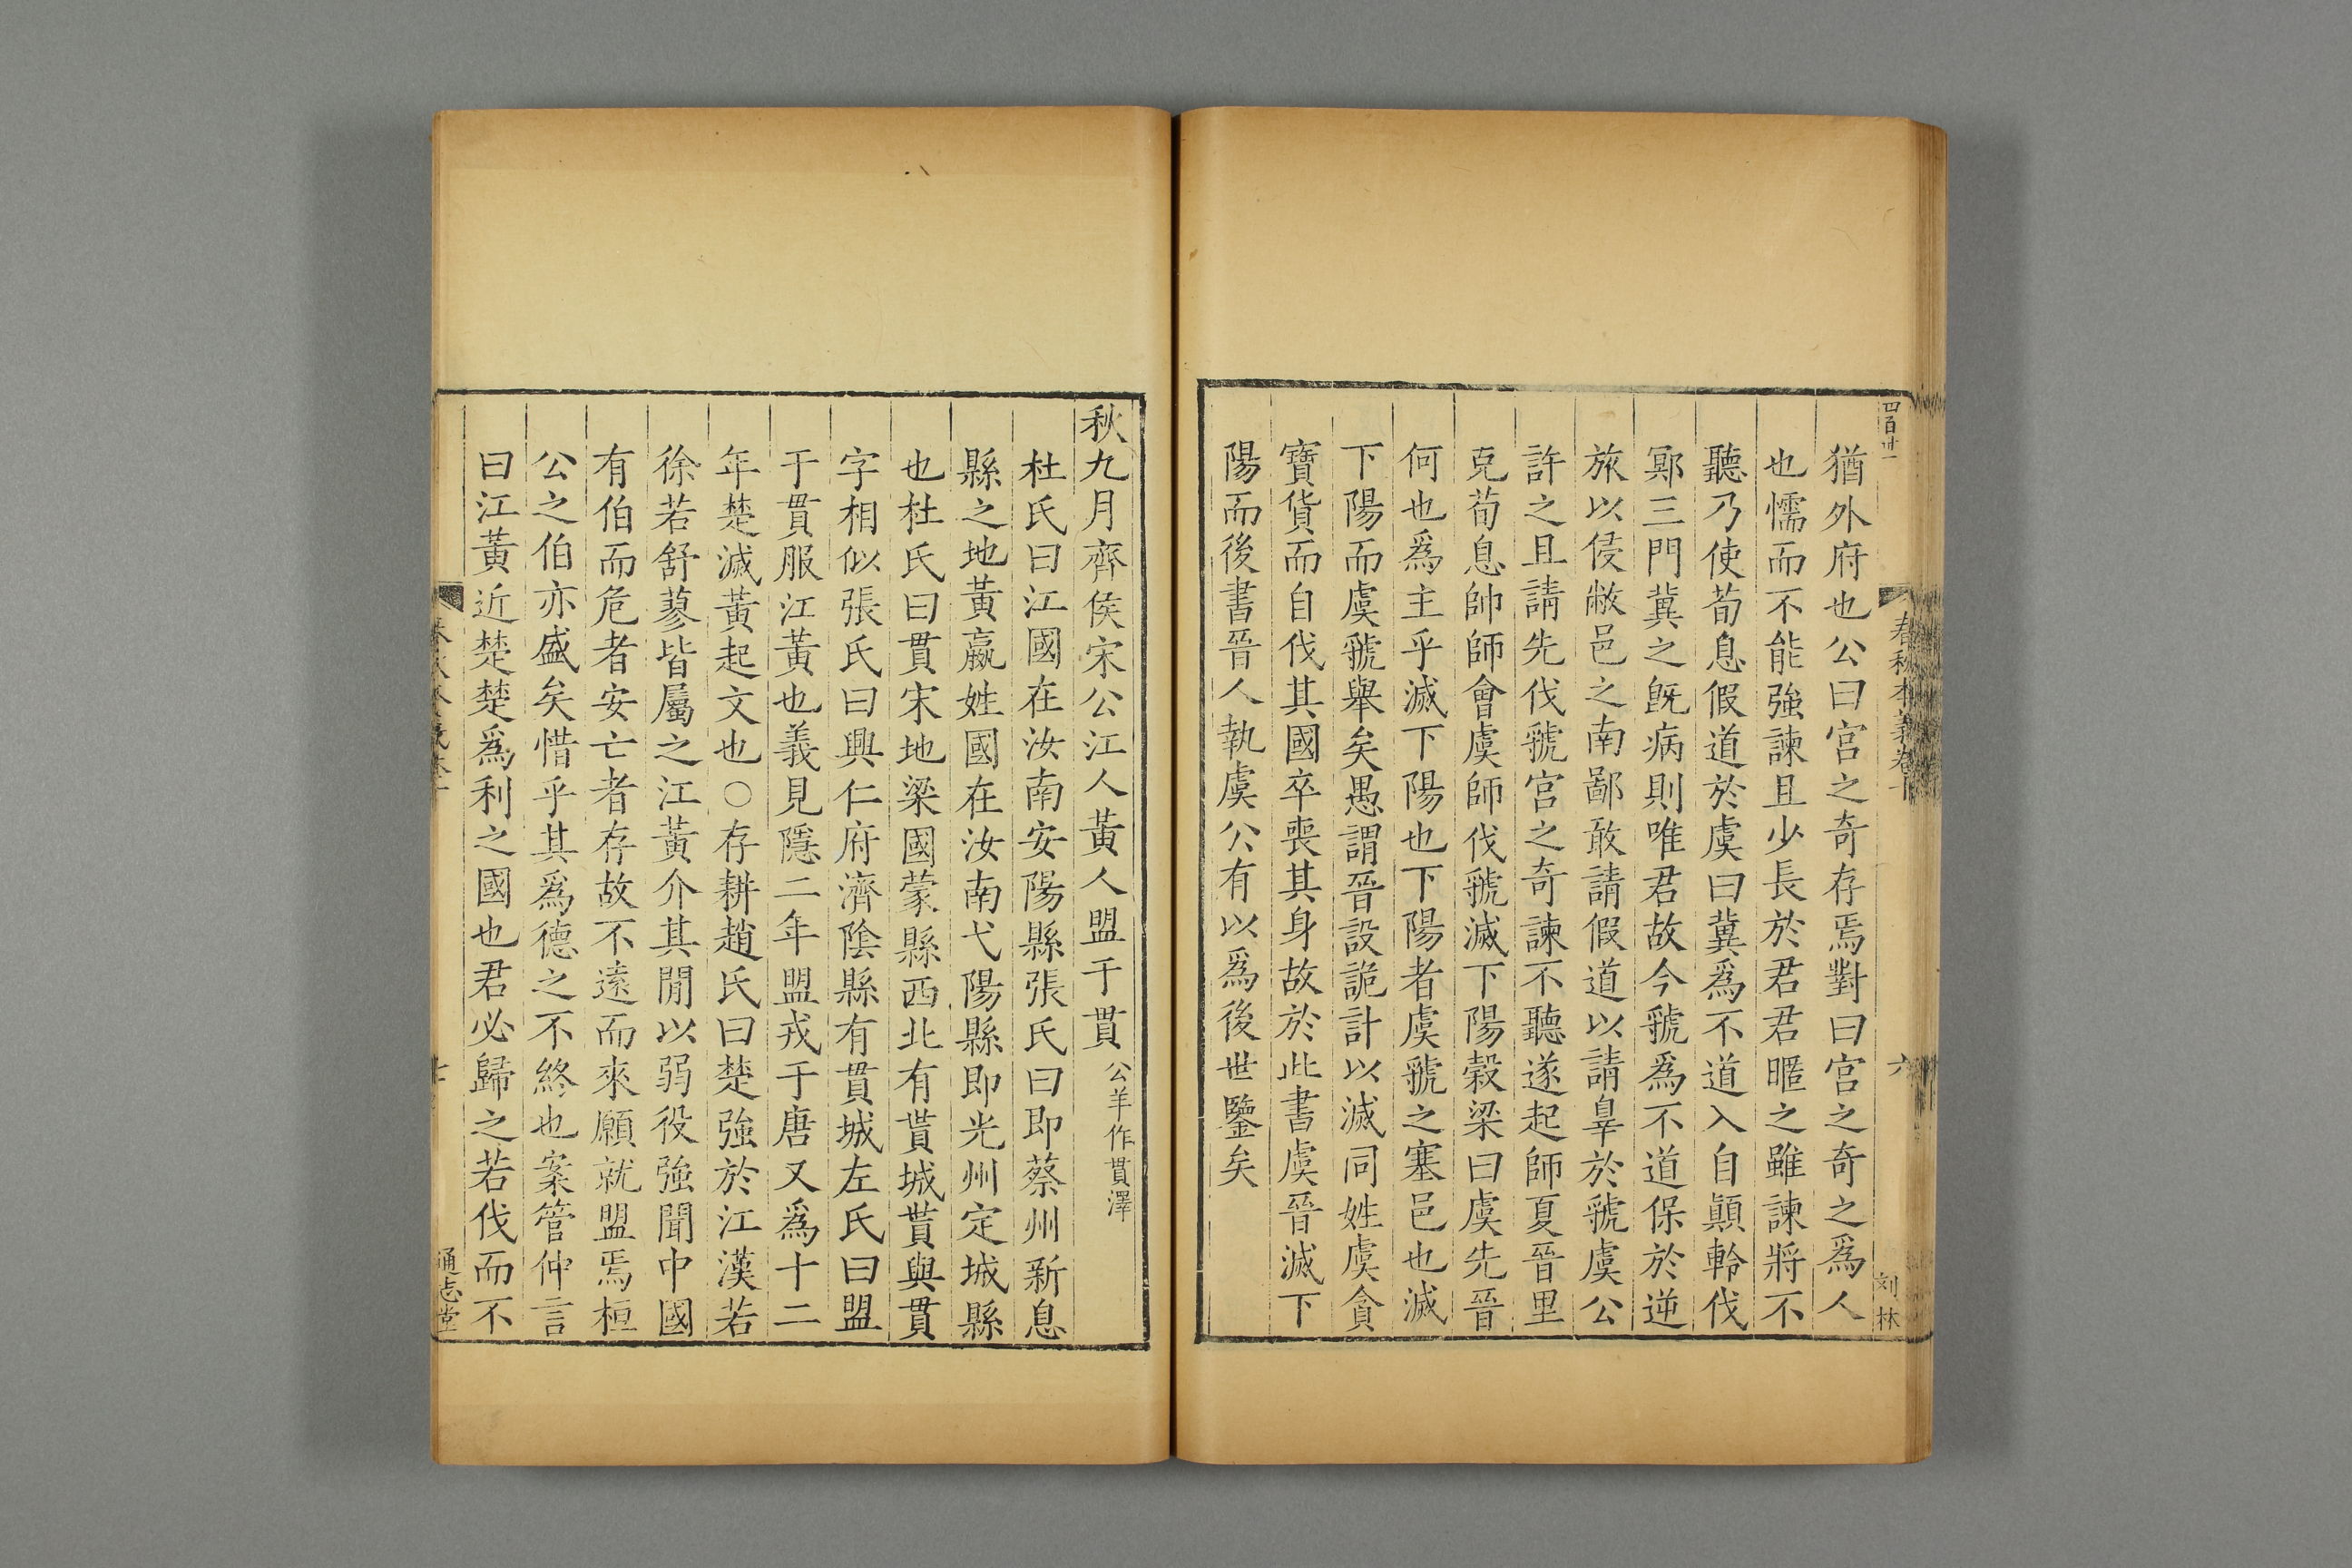 四百廿一
春秋本義卷十
六
刘林
猶外府也公曰宫之奇存焉對曰宫之奇之爲人
也懦而不能強諫且少長於君君暱之雖諫將不
聽乃使荀息假道於虞曰冀爲不道入自顚軨伐
鄍三門冀之旣病則唯君故今虢爲不道保於逆
旅以侵敝邑之南鄙敢請假道以請辠於虢虞公
許之且請先伐虢宫之奇諫不聽遂起師夏晉里
克荀息帥師會虞師伐虢滅下陽榖梁曰虞先晉
何也爲主乎滅下陽也下陽者虞虢之塞邑也滅
下陽而虞虢舉矣愚謂晉設詭計以滅同姓虞貪
寶貨而自伐其國卒喪其身故於此書虞晉滅下
陽而後書晉人執虞公有以爲後世鑒矣
秋九月齊侯宋公江人黃人盟于貫公羊作貫澤
杜氏曰江國在汝南安陽縣張氏曰即蔡州新息
縣之地黃嬴姓國在汝南弋陽縣即光州定城縣
也杜氏曰貫宋地梁國蒙縣西北有貰城貰與貫
字相似張氏曰興仁府濟隂縣有貫城左氏曰盟
于貫服江黃也義見隱二年盟戎于唐又爲十二
年楚滅黃起文也○存耕趙氏曰楚強於江漢若
徐若舒蓼皆屬之江黃介其閒以弱役強聞中國
有伯而危者安亡者存故不遠而來願就盟焉桓
公之伯亦盛矣惜乎其爲德之不終也案管仲言
曰江黃近楚楚爲利之國也君必歸之若伐而不
七
通志堂